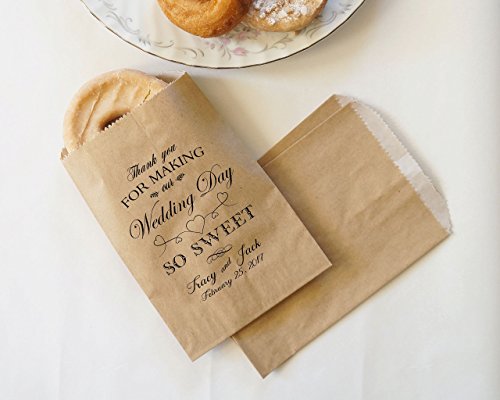 Thank you
FOR MAKING
our
Wedding Day
SO SWEET
Tracy and Jack
February 25, 2017